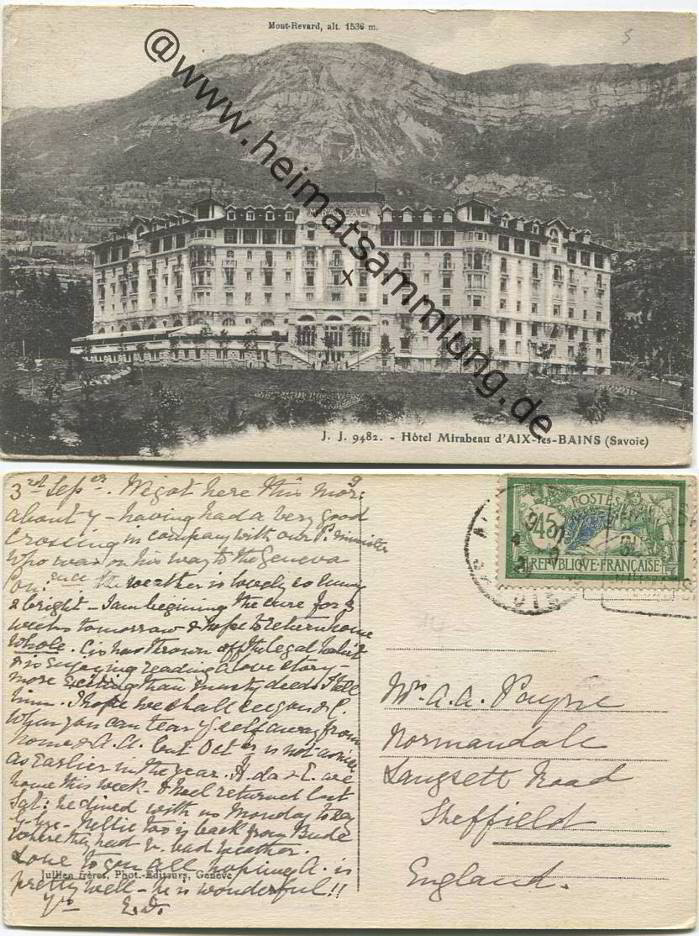 Mont-Revard, alt. 1538 m.
@www.heimatsammlung.de
MIRABEAU
J. J. 9482. - Hôtel Mirabeau d'AIX-les-BAINS (Savoie)
3rd Sepr. We got here this mor:g
about 7 - having had a very good
crossing in company with our P. minister
who was on his way to the Geneva
Con:ence the weather is lovely so sunny
& bright - I am beginning the cure for 3
weeks tomorrow & hope to return home
whole. has thrown off the legal habit
& is enjoying reading a love story -
more exciting than musty deeds I tell
him. I hope we shall see you & P.
when you can tear yself away from
home & A.A. but Octer is not as nice
as earlier in the year. & E. are
home this week - returned last
Sat: he dined with us Monday to say
g-bye - Nellie too is back from Bude
where they had bad weather.
Love to you all hoping A. is
pretty well - he is wonderful!!
Jullien frères, Phot.-Editeurs, Genève
POSTES
45
REPUBLIQUE FRANÇAISE
Mrs. A. A. Payne
Normandale
Langsett Road
Sheffield
England.